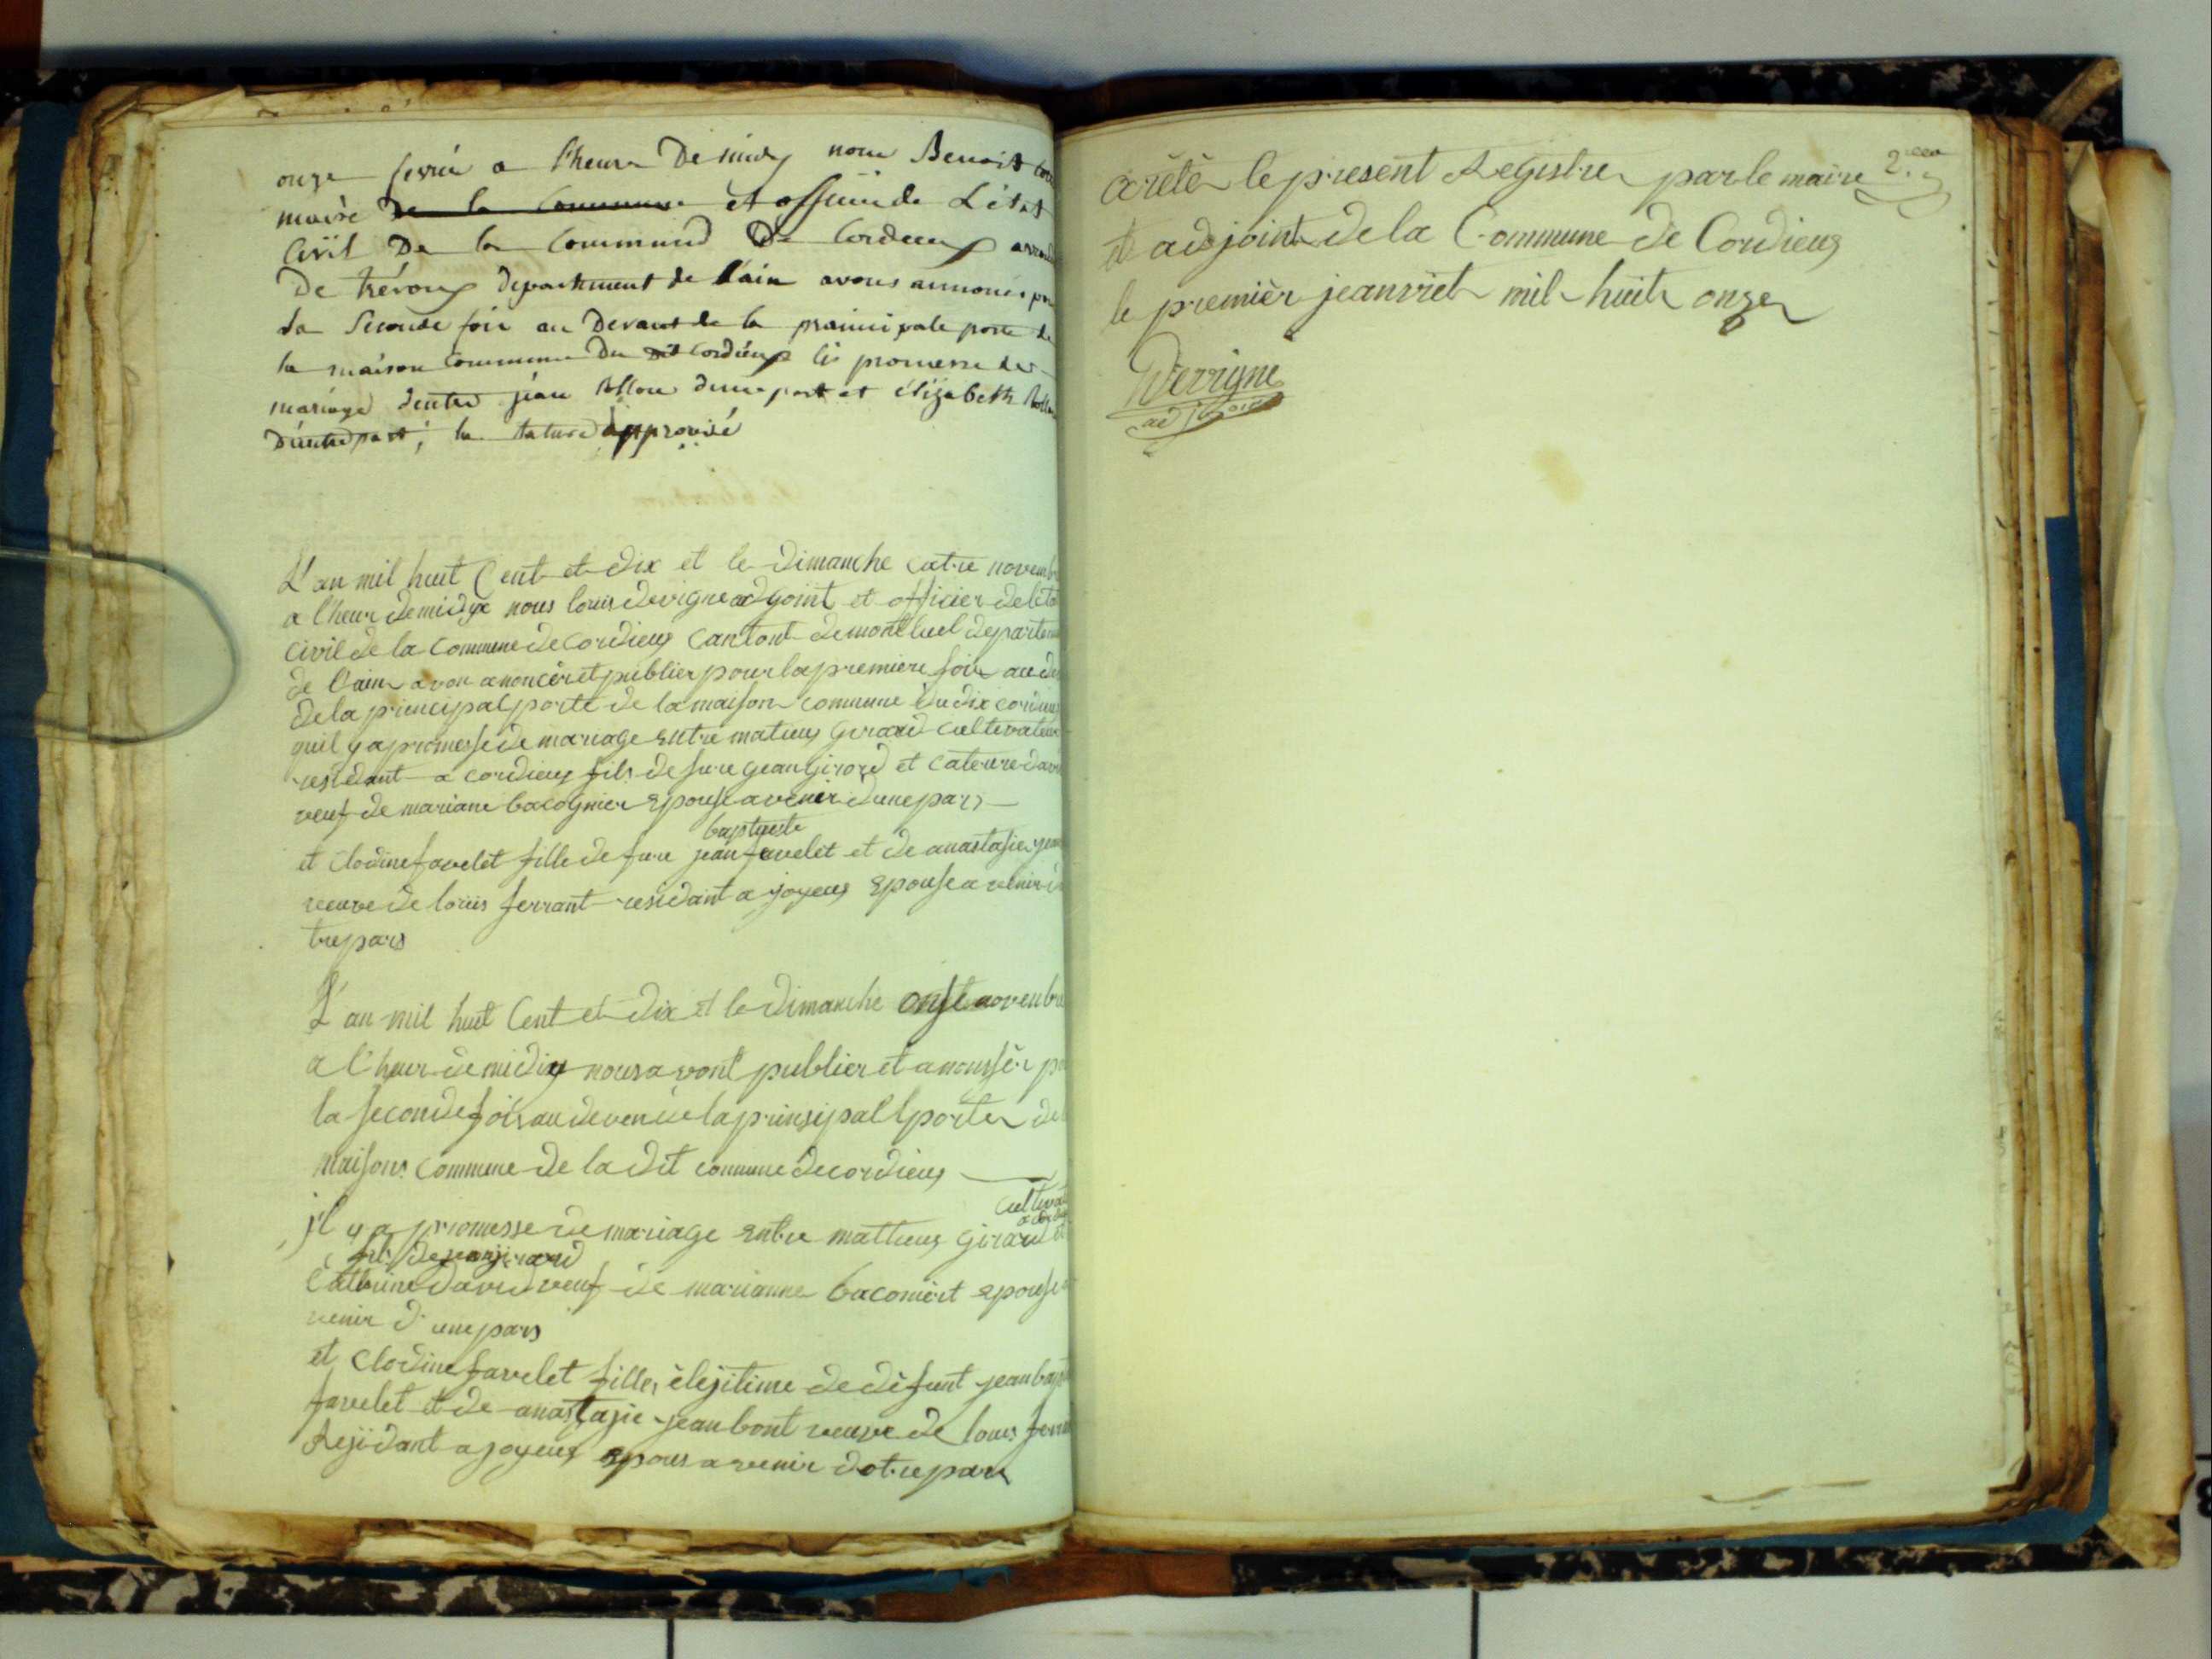 onze fevrié a l'heure De midy nous Benoit
maire de la Commune et officié de L'état
Civil De la Commune De Cordieux
De trévoux departement de l'ain avons annoncé
la seconde fois au Devant de la prainsipale porte de
la maison Commune Du dit Cordieux les promesse de
mariage d'entre jean Rollon d'une part et élizabeth
D'autre part ; la rature approuvé
L'an mil huit Cent et dix et le dimanche catre novembre
a l'heur de midyx nous louis devigne adgoint et officier de léta
civil de la Commune de Cordieux Cantont de montluel departem
de l'ain avon anoncér et publier pour la premiere fois au de
de la prencipal porte de la maison commune du dix cordieux
quil y a promesse de mariage entre matieux girard cultivateur
residant a cordieux fils de fure gean girord et caterine davi
veuf de mariane bacognier epouse a venir d'une pars
baptiste
et Clodine favelet fille de fure jean favelet et de anastasie jean
veuve de louis ferrant residant a joyeux epouse a venir
tre pars
L'an mil huit Cent et dix et le dimanche onse novembre
a l'heur de midix nous avont publier et anonsser
la seconde fois au deven de la prinsipall porte de
maisons commune de la dit commune de cordieux
Cultiva
jl y a promesse de mariage entre mattieux girard et
fils de jean girard
Catterine david veuf de marianne baconiert epouse
venir d'une pars
et Clodine favelet fille, élejitime de défunt jean bap
favelet et de anastazie jeanbont veuve de louis ferra
Rezidant a joyeux epous a venir dotre pars
2.
arêtér le present Registre par le maire
et adjoint de la Commune de Cordieux
le premièr jeanviét mil huit onze
Devigne
adjoint